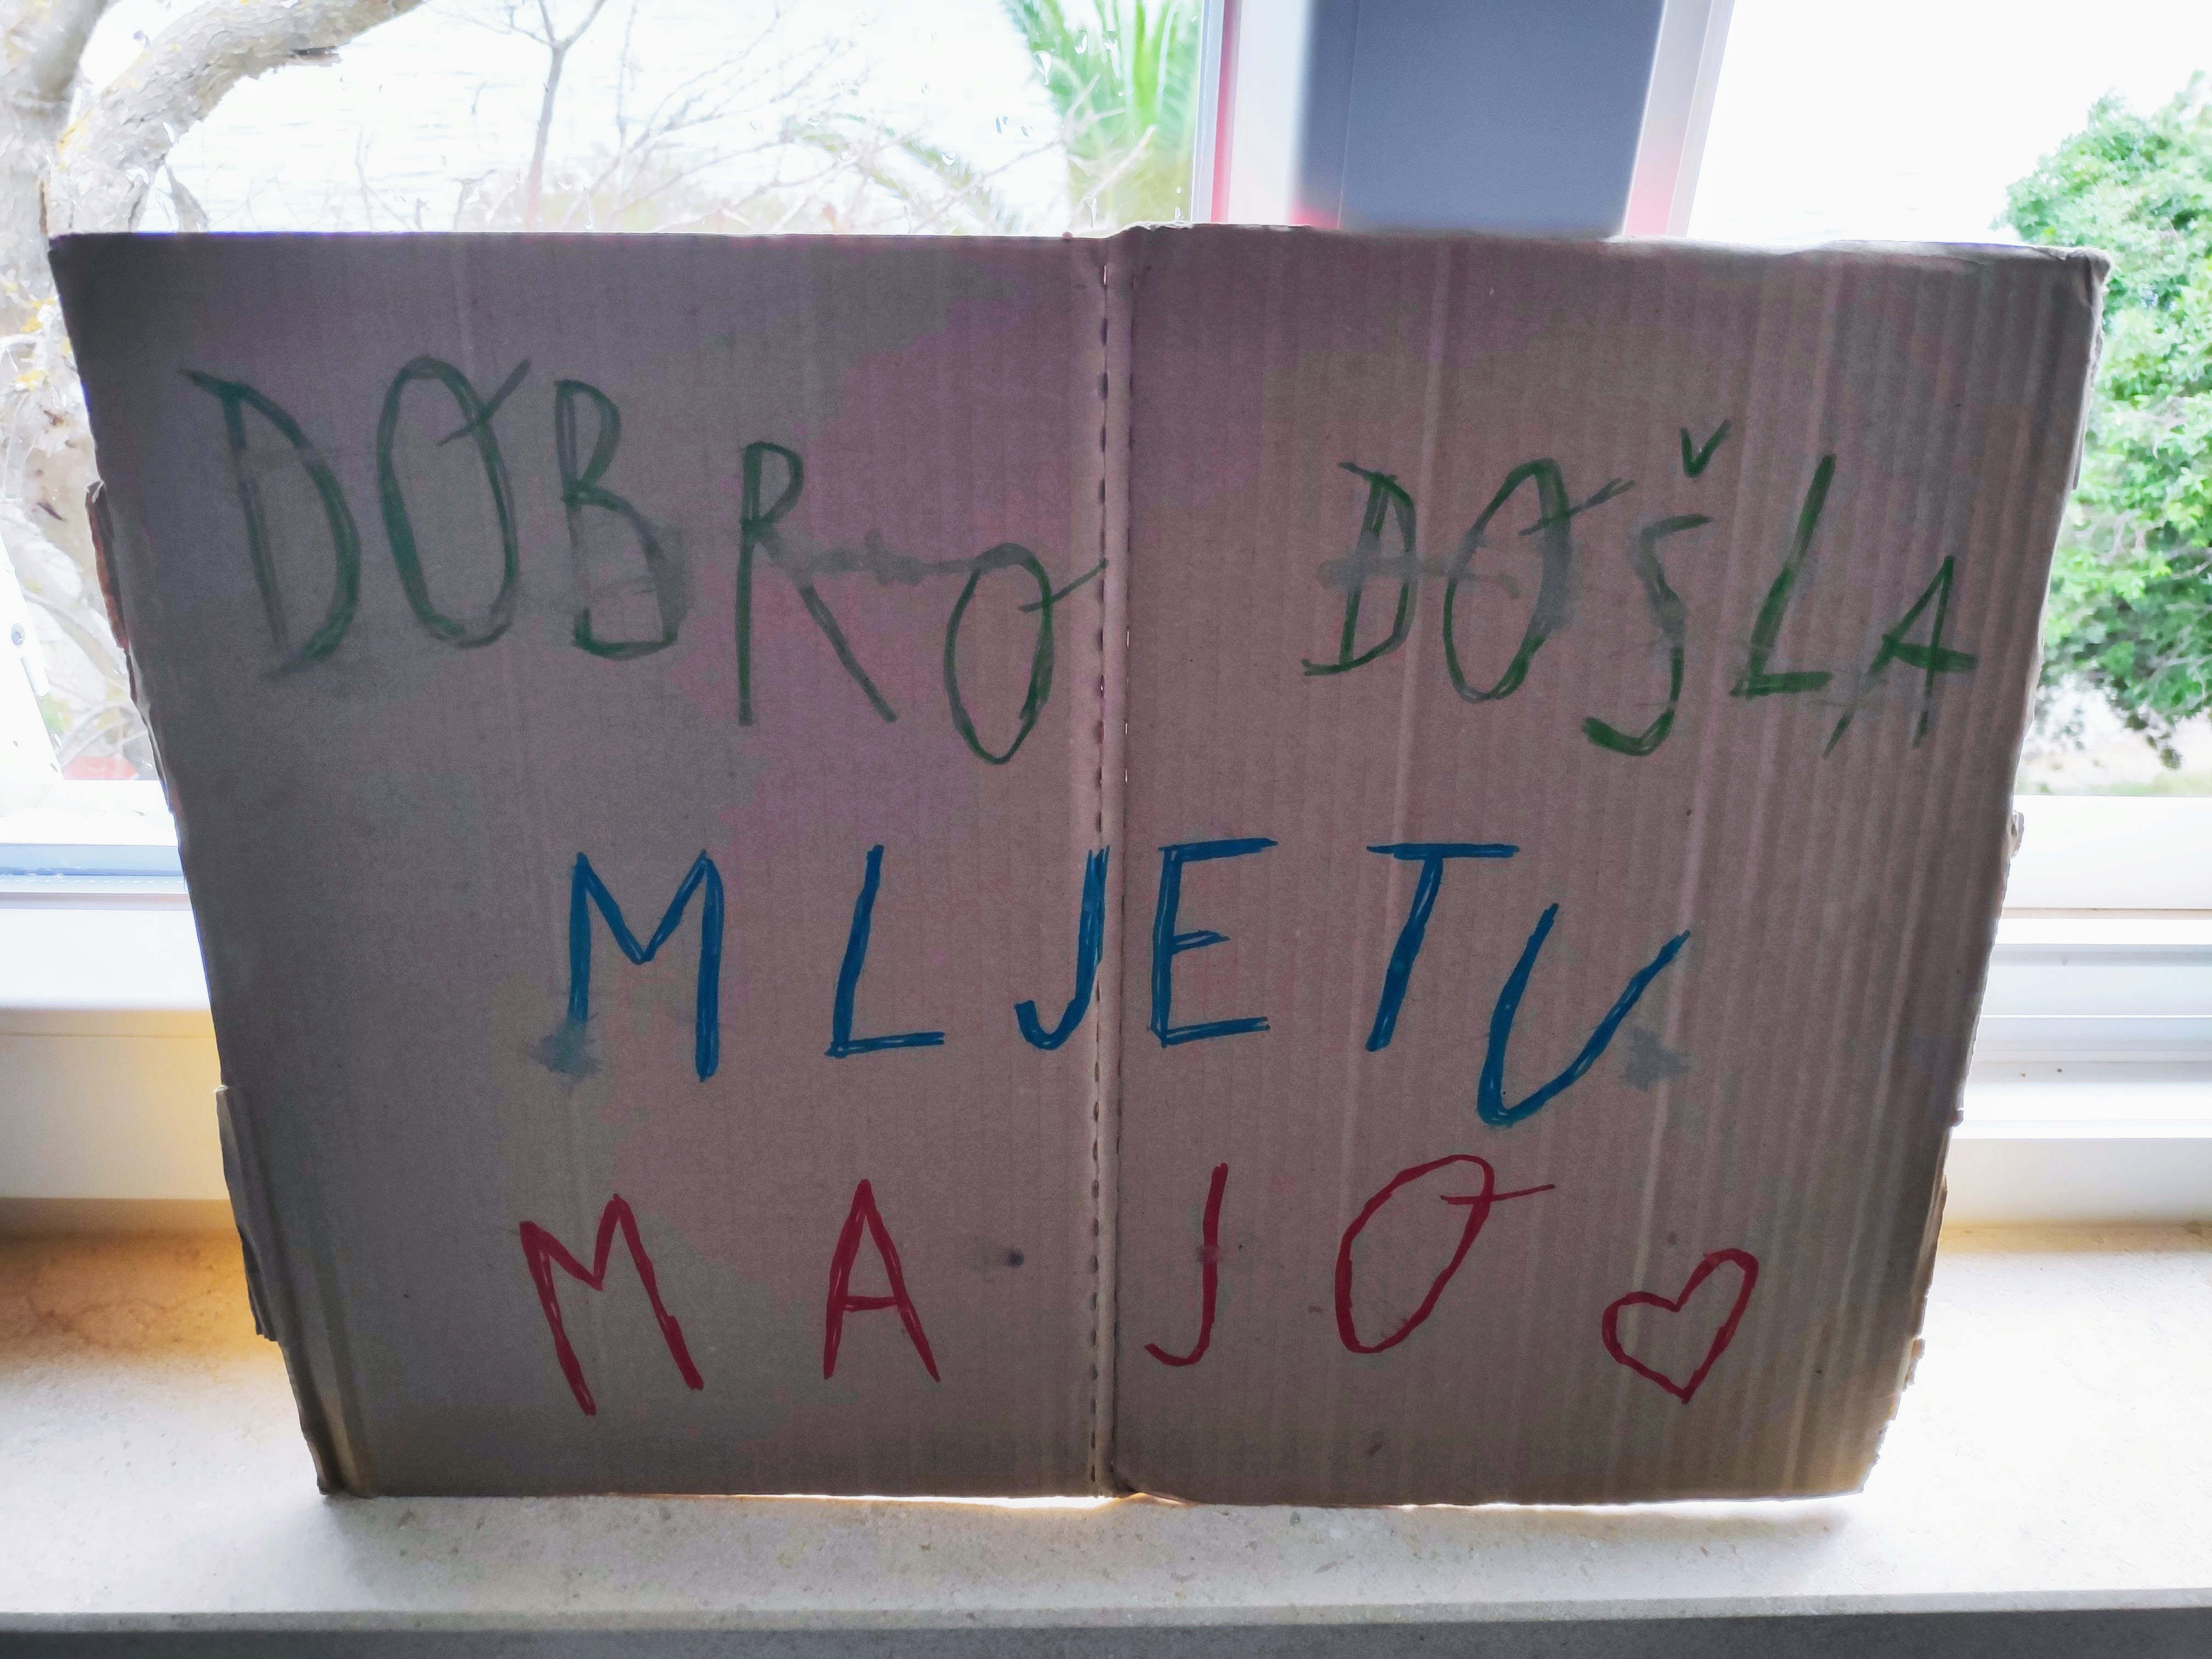 DOBRO DOŠLA
MLJETU
MAJO